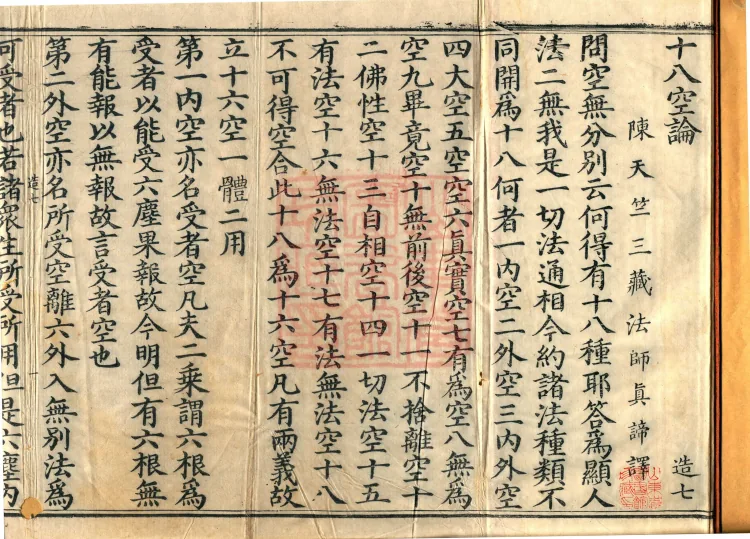 十八空論
造七
陳天竺三藏法師眞諦譯
問空無分別云何得有十八種耶答爲顯人
法二無我是一切法通相今約諸法種類不
同開爲十八何者一內空二外空三內外空
四大空五空空六眞實空七有爲空八無爲
空九畢竟空十無前後空十一不捨離空十
二佛性空十三自相空十四一切法空十五
有法空十六無法空十七有法無法空十八
不可得空合此十八爲十六空凡有兩義故
立十六空一體二用
第一內空亦名受者空凡夫二乘謂六根爲
受者以能受六塵果報故今明但有六根無
有能報以無報故言受者空也
第二外空亦名所受空離六外入無別法爲
造七
可受者也若諸衆生所受所用但是六塵內